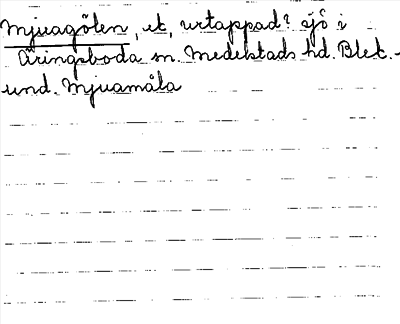 Mjuagölen, et, urtappad? sjö i
Äringsboda sn. Medelstads hd. Blek. -
und. Mjuamåla